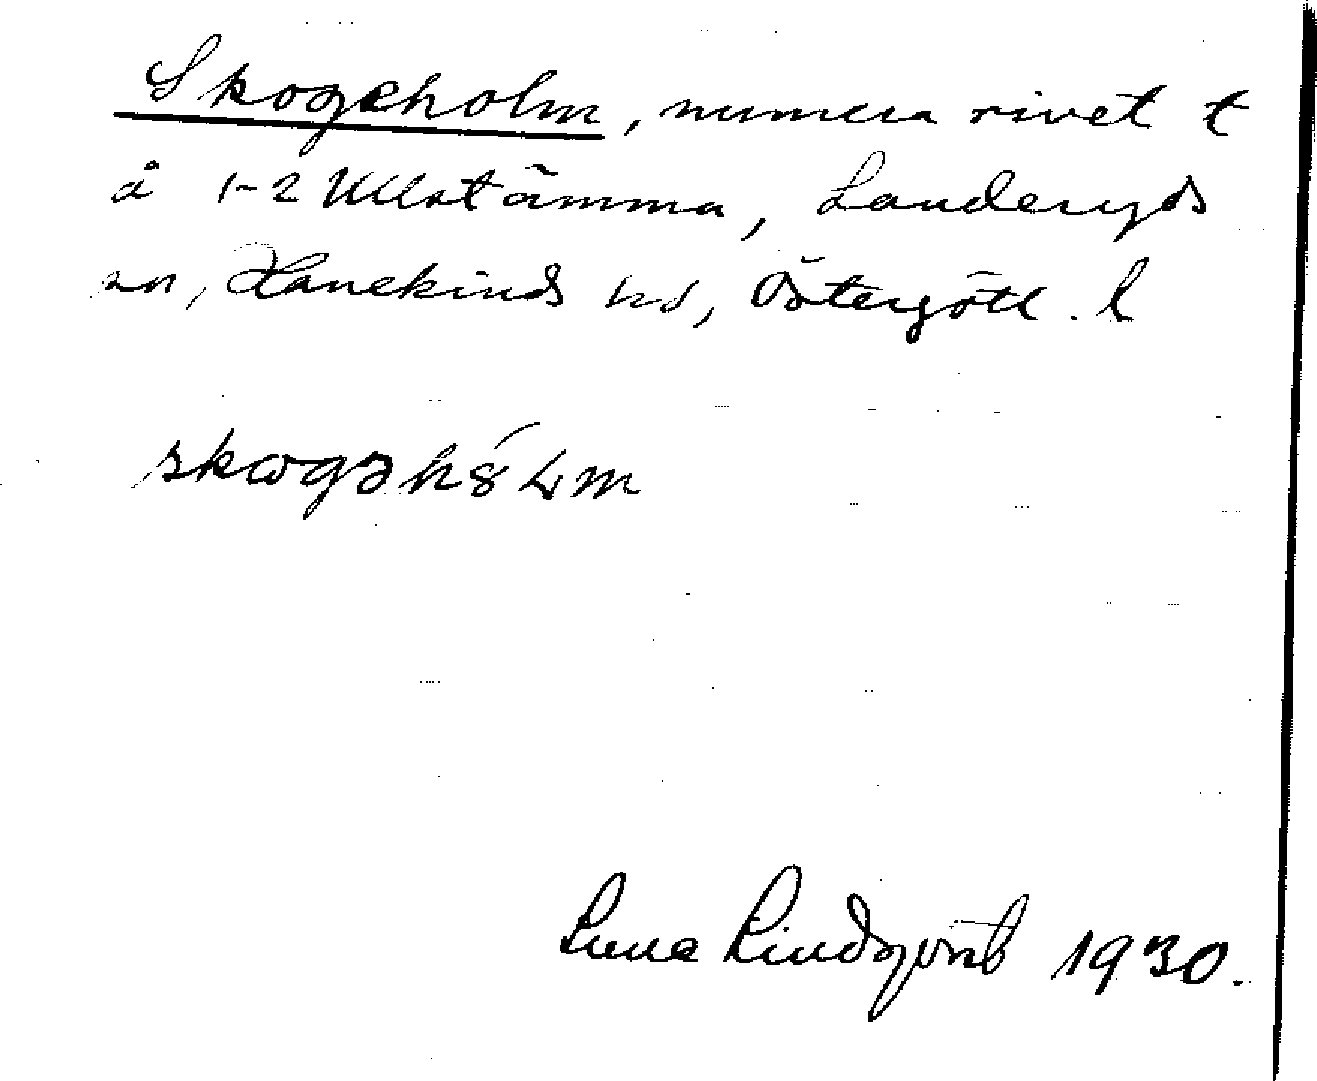 Skogeholm, numera rivet t
å 1-2 Ullstämma, Landeryds
sn, Hanekinds hd, Östergötl. l
skogəh8́Lm
Lindqvist 1930.